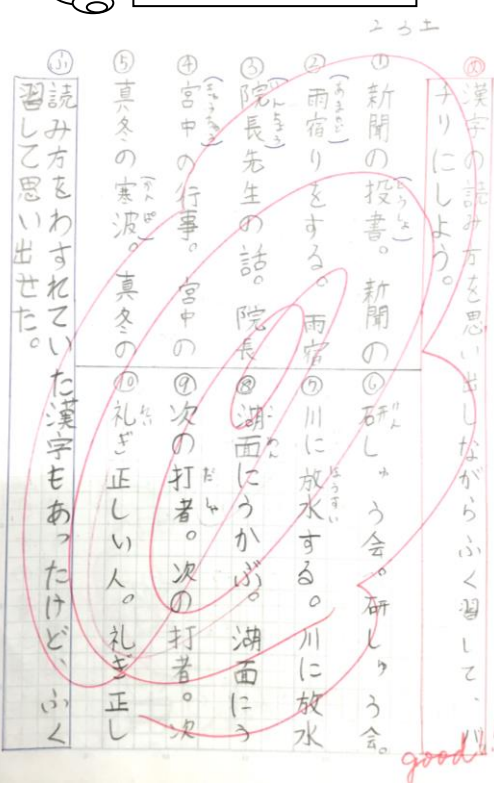 2 3 土
め 漢字の読み方を思い出しながらふく習して、バ
チリにしよう。
① 新聞の投書(とうしょ)。新聞の
② 雨宿(あまやど)りをする。雨宿
③ 院長(いんちょう)先生の話。院長
④ 宮中(きゅうちゅう)の行事。宮中の
⑤ 真冬の寒波(かんぱ)。真冬の
⑥ 研(けん)しゅう会。研しゅう会。
⑦ 川に放水(ほうすい)する。川に放水
⑧ 湖面(こめん)にうかぶ。湖面にう
⑨ 次の打者(だしゃ)。次の打者。次
⑩ 礼(れい)ぎ正しい人。礼ぎ正し
ふ 読み方をわすれていた漢字もあったけど、ふく
習して思い出せた。
good!!